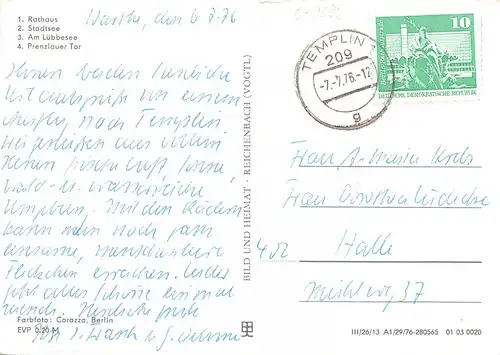 1. Rathaus
2. Stadtsee
3. Am Lübbesee
4. Prenzlauer Tor
Warthe, den 6.7.76
Ihnen beiden herzliche
Urlaubsgrüße von einem
Ausflug nach Templin
Wir genießen aus vollen
frische Luft, Sonne,
wald- u. wasserreiche
Umgebung. Mit den Rädern
kann man noch ganz
einsame, menschenleere
Fleckchen erreichen. Leider
geht alles Schöne einmal
zuende. Herzliche Grüße
Farbfoto: Corazza, Berlin
EVP 0,20 M
BILD UND HEIMAT · REICHENBACH (VOGTL)
TEMPLIN 1
209
-7.-7.76.-17
g
10
DEUTSCHE DEMOKRATISCHE REPUBLIK
Frau A.-Maria Krebs
Frau Dorothea
402 Halle
37
III/26/13 A1/29/76-280565 01 03 0020